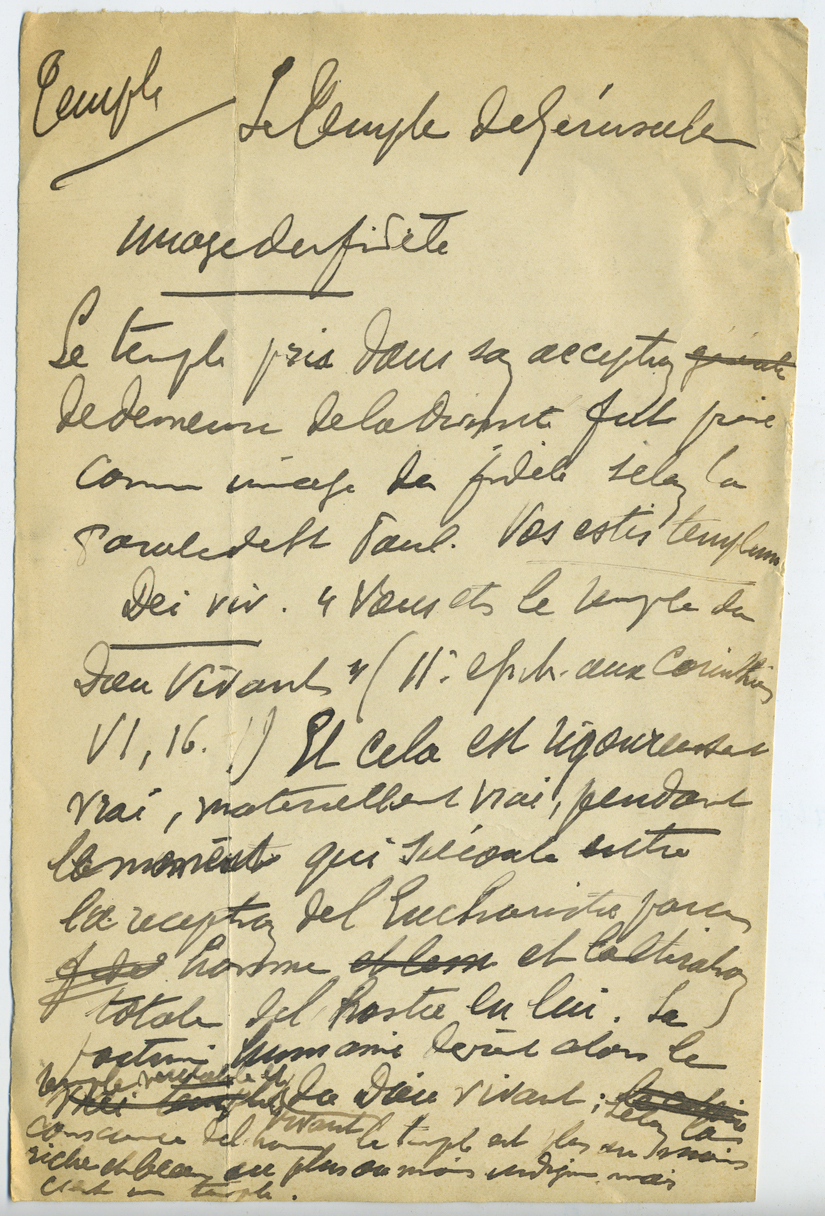 Temple
Le Temple de Jérusalem
Image du fidèle
Le temple pris dans son acception générale
de demeure de la divinité fut
comme image du fidèle selon la
Parole de St Paul. Vos estis templum
Dei viv. " Vous êts le temple du
Dieu Vivant " ( II: epit. aux Corinthiens
VI, 16. ) Et cela est rigoureusement
vrai, matériellement vrai, pendant
le moment qui s'écoule entre
la reception de l'Eucharistie par un
fidèle homme et l'altération
totale de l'hostie en lui. La
poitrine humaine devient alors le
temple véritable et
vrai temple du Dieu vivant ; selon la
conscience de l'homme le temple est plus ou moins
vivant
riche et beau ou plus ou moins indigne mais
c'est un temple.